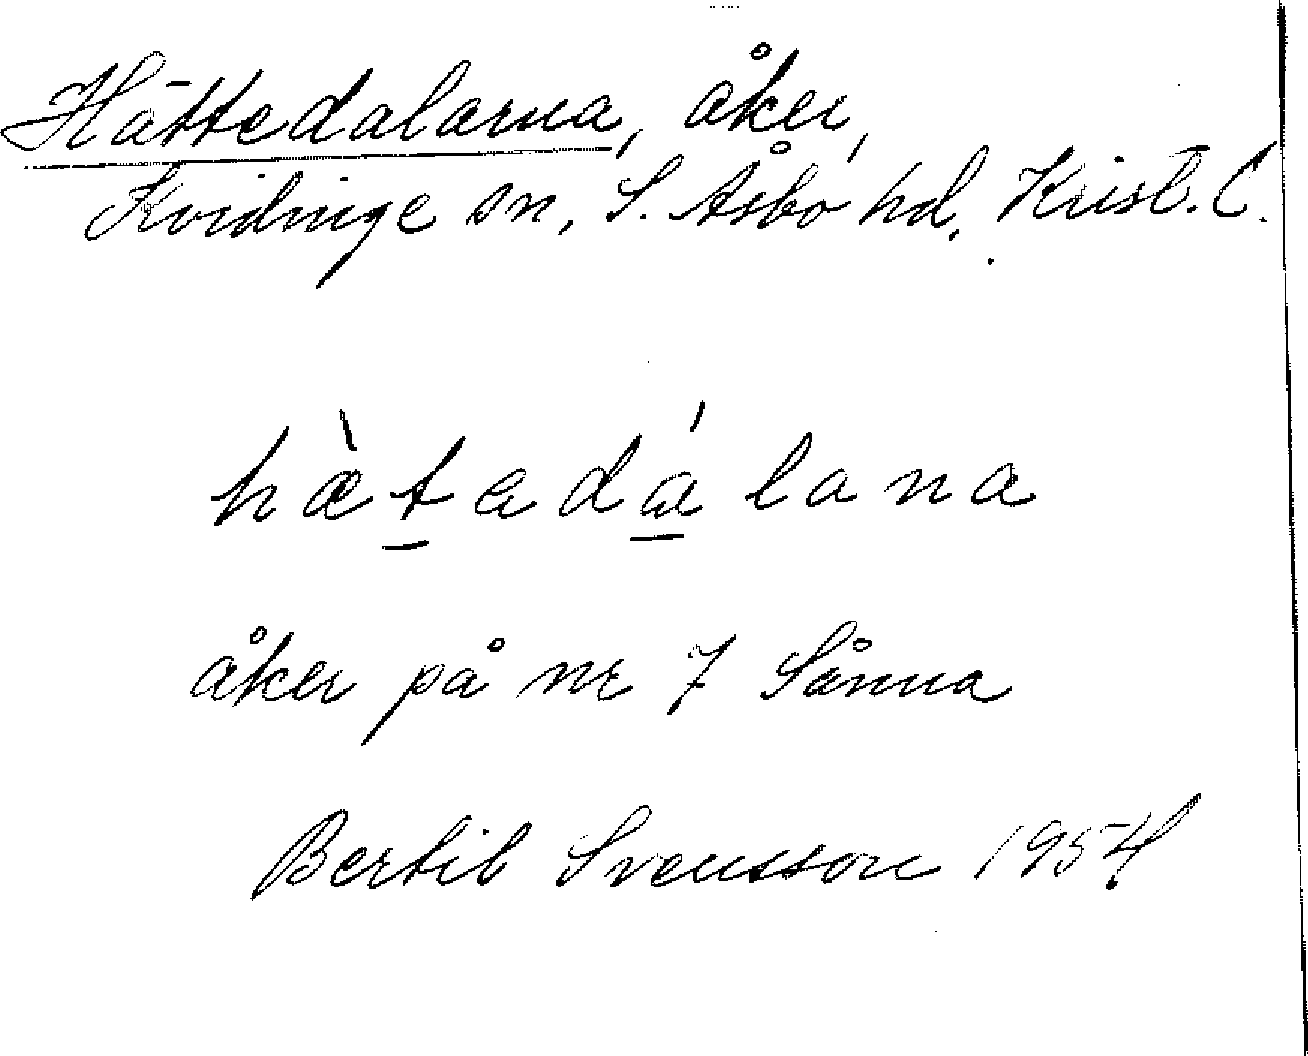 Hättedalarna, åker,
Kvidinge sn, S. Åsbo hd, Krist. l.
hæ̀tadálana
åker på nr 7 Sånna
Bertil Svensson 1954